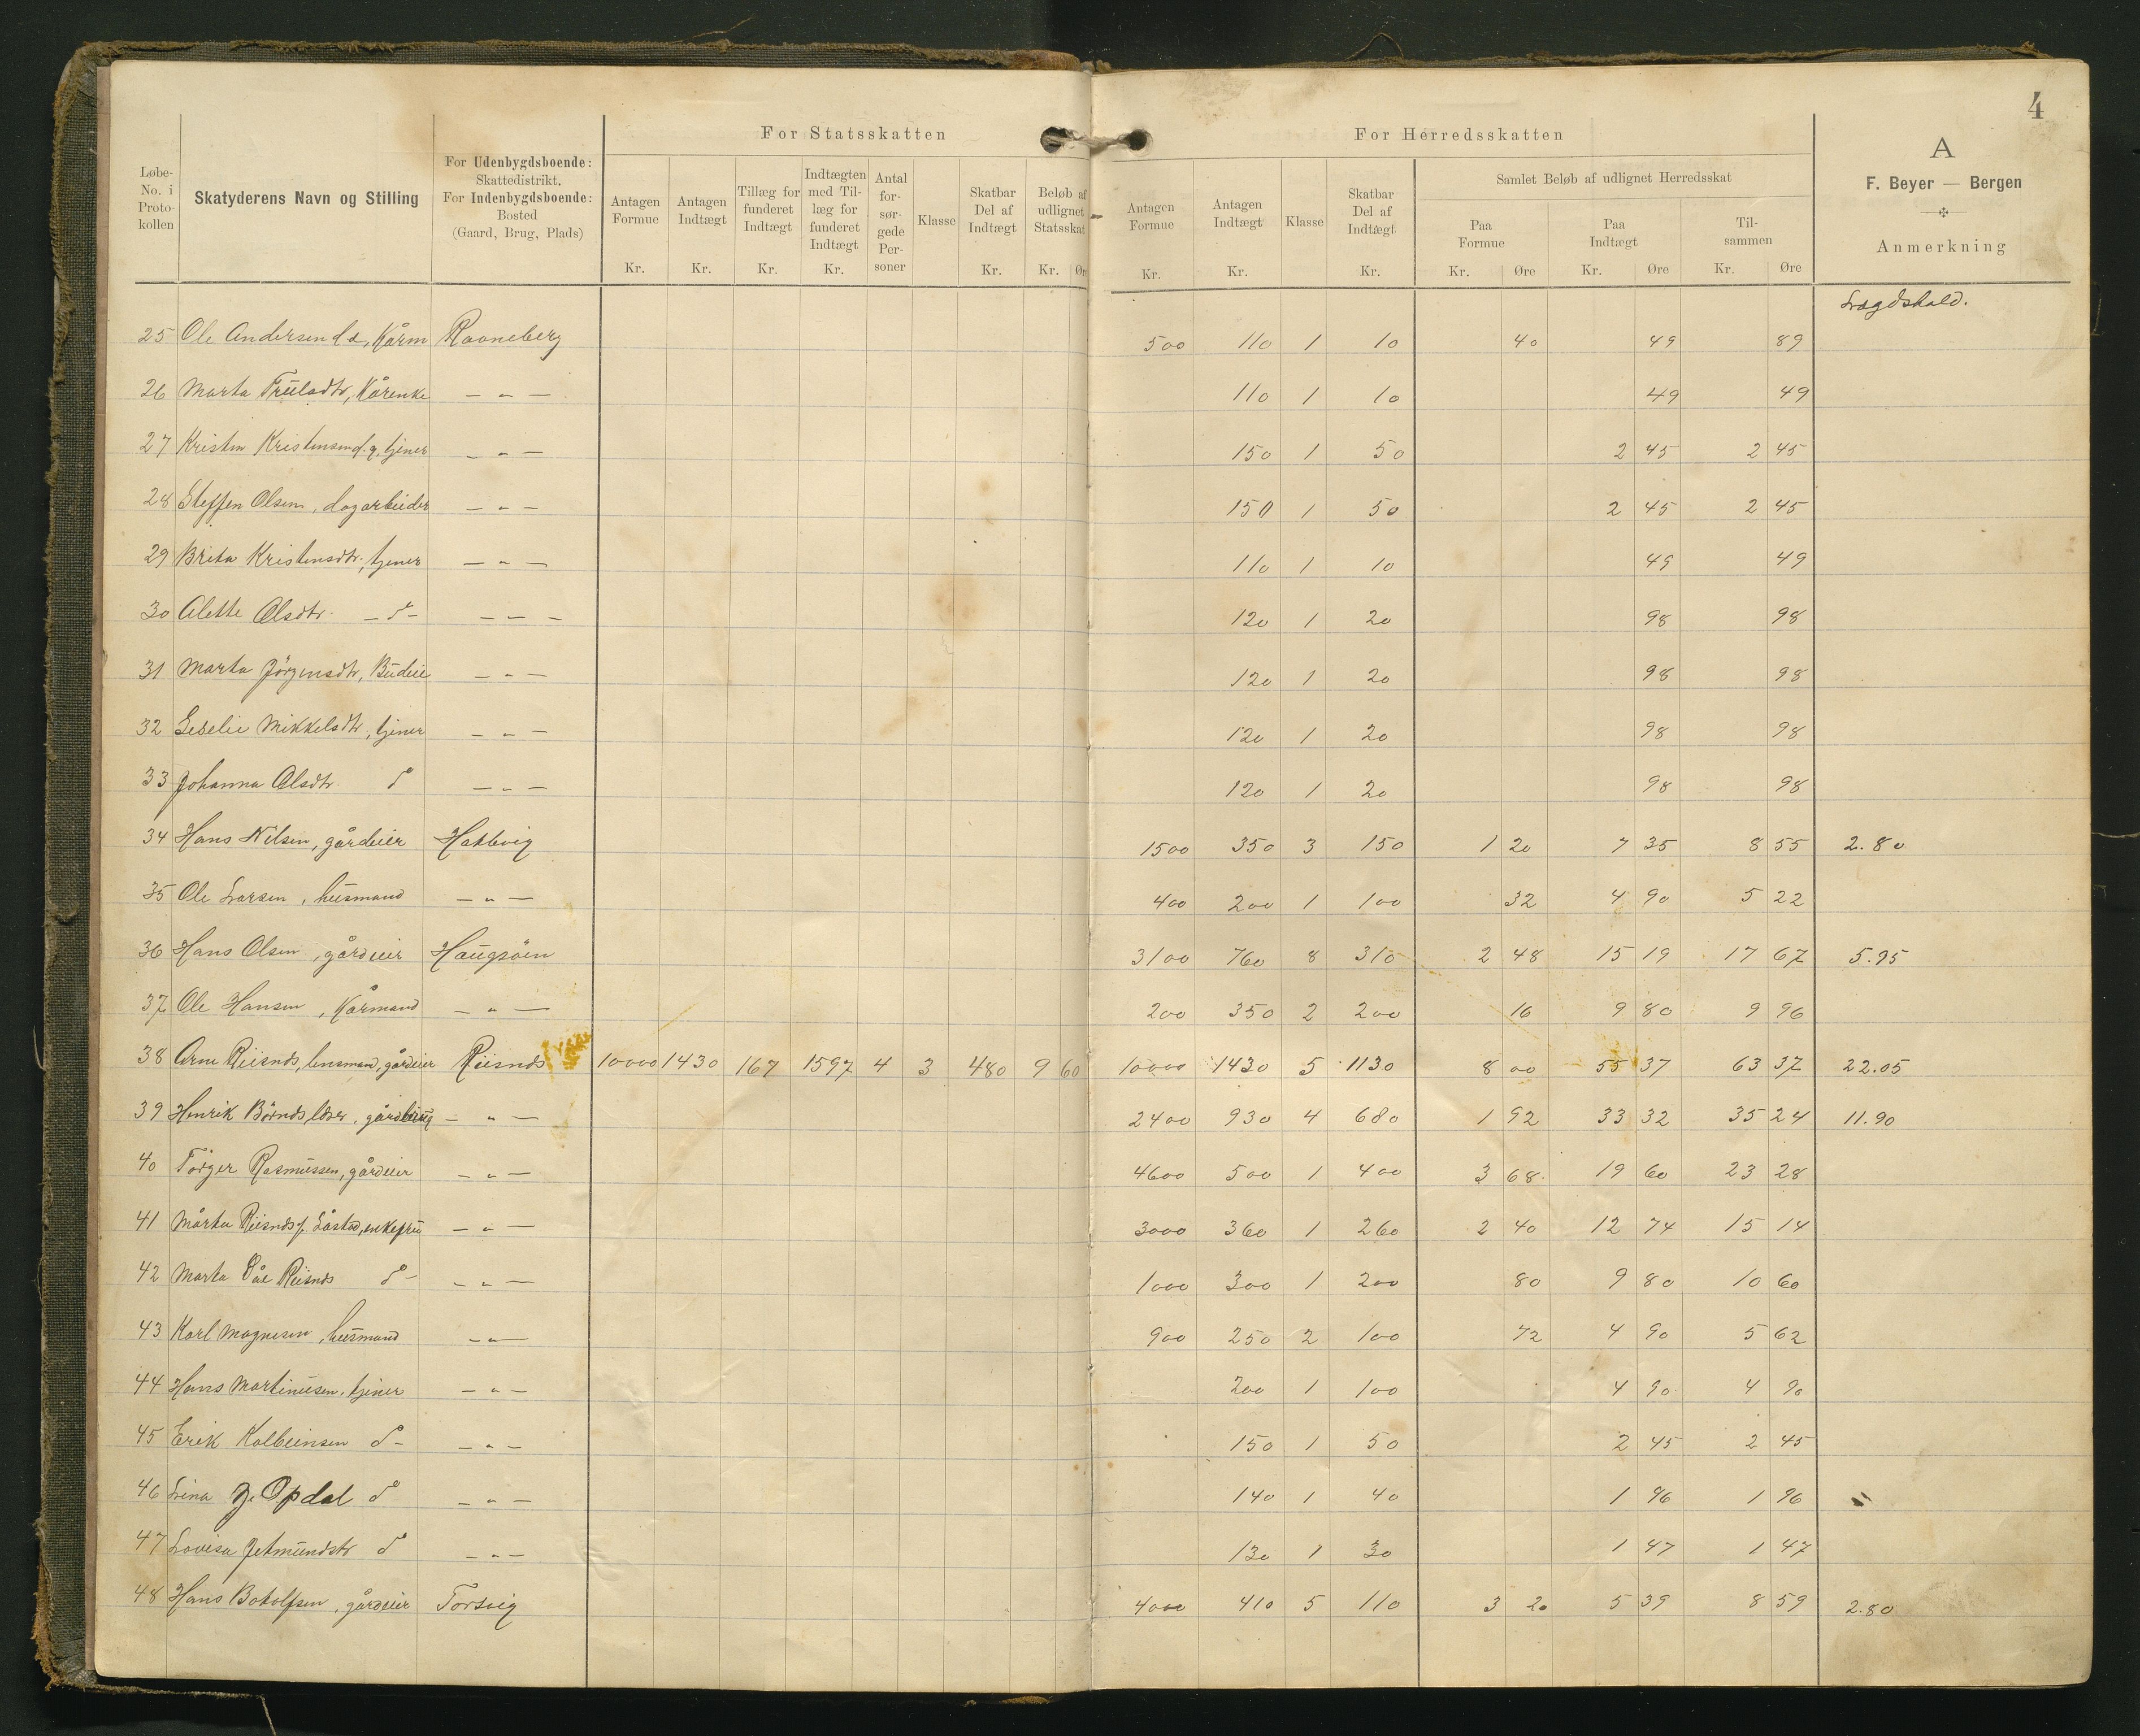 4
For Statsskatten
For Herredsskatten
A
F. Beyer — Bergen
Anmerkning
Løbe-No. i Proto-kollen
Skatyderens Navn og Stilling
For Udenbygdsboende: Skattedistrikt. For Indenbygdsboende: Bosted (Gaard, Brug, Plads)
Antagen Formue Kr.
Antagen Indtægt Kr.
Tillæg for funderet Indtægt Kr.
Indtægten med Til-læg for funderet Indtægt Kr.
Antal for-sør-gede Per-soner
Klasse
Skatbar Del af Indtægt Kr.
Beløb af udlignet Statsskat Kr. Øre
Antagen Formue Kr.
Antagen Indtægt Kr.
Klasse
Skatbar Del af Indtægt Kr.
Samlet Beløb af udlignet Herredsskat
Paa Formue Kr. Øre
Paa Indtægt Kr. Øre
Til-sammen Kr. Øre
Lægdshald.
25 Ole Andersen d.æ, Kårm Raaneberg 500 110 1 10 40 49 89
26 Marta Trulsdtr, Kårenke — " — 110 1 10 49 49
27 Kristen Kristensen d.y, tjener — " — 150 1 50 2 45 2 45
28 Steffen Olsen, dagarbeider — " — 150 1 50 2 45 2 45
29 Brita Kristensdtr, tjener — " — 110 1 10 49 49
30 Alette Olsdtr. — do — — — — 120 1 20 98 98
31 Marta Jörgensdtr, Budeie — " — 120 1 20 98 98
32 Sedelie Mikkelsdtr, tjener — " — 120 1 20 98 98
33 Johanna Olsdtr. do — " — 120 1 20 98 98
34 Hans Nilsen, gårdeier Hatlevig 1500 350 3 150 1 20 7 35 8 55 2.80
35 Ole Larsen, husmand — " — 400 200 1 100 32 4 90 5 22
36 Hans Olsen, gårdeier Haugsöen 3100 760 8 310 2 48 15 19 17 67 5.95
37 Ole Hansen, Kårmand — " — 200 350 2 200 16 9 80 9 96
38 Arne Riisnes, lensmand, gårdeier Riisnes 10000 1430 167 1597 4 3 480 9 60 10000 1430 5 1130 8 00 55 37 63 37 22.05
39 Henrik — " — 2400 930 4 680 1 92 33 32 35 24 11.90
40 Torger Rasmussen, gårdeier — " — 4600 500 1 400 3 68 19 60 23 28
41 Mårta Riisnes f. Låstad, enkefru — " — 3000 360 1 260 2 40 12 74 15 14
42 Marta Riisnes do — — " — 1000 300 1 200 80 9 80 10 60
43 Karl Magnesen, husmand — " — 900 250 2 100 72 4 90 5 62
44 Hans Martinusen, tjener — " — 200 1 100 4 90 4 90
45 Erik Kolbeinsen do — — " — 150 1 50 2 45 2 45
46 Lina J. Opdal do — " — 140 1 40 1 96 1 96 "
47 Lovisa Jetmundsdtr do — " — 130 1 30 1 47 1 47
48 Hans Botolfsen, gårdeier Torsvig 4000 410 5 110 3 20 5 39 8 59 2.80